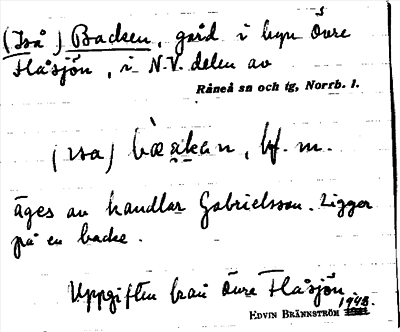 (Iså) Backen, gård i byn Övre
Flåsjön, i N.V. delen av
Råneå sn och tg, Norrb. l.
bf. m.
äges av handlar Gabrielsson. Ligger
på en backe.
Uppgiften från Övre Flåsjön.
1948.
EDVIN BRÄNNSTRÖM